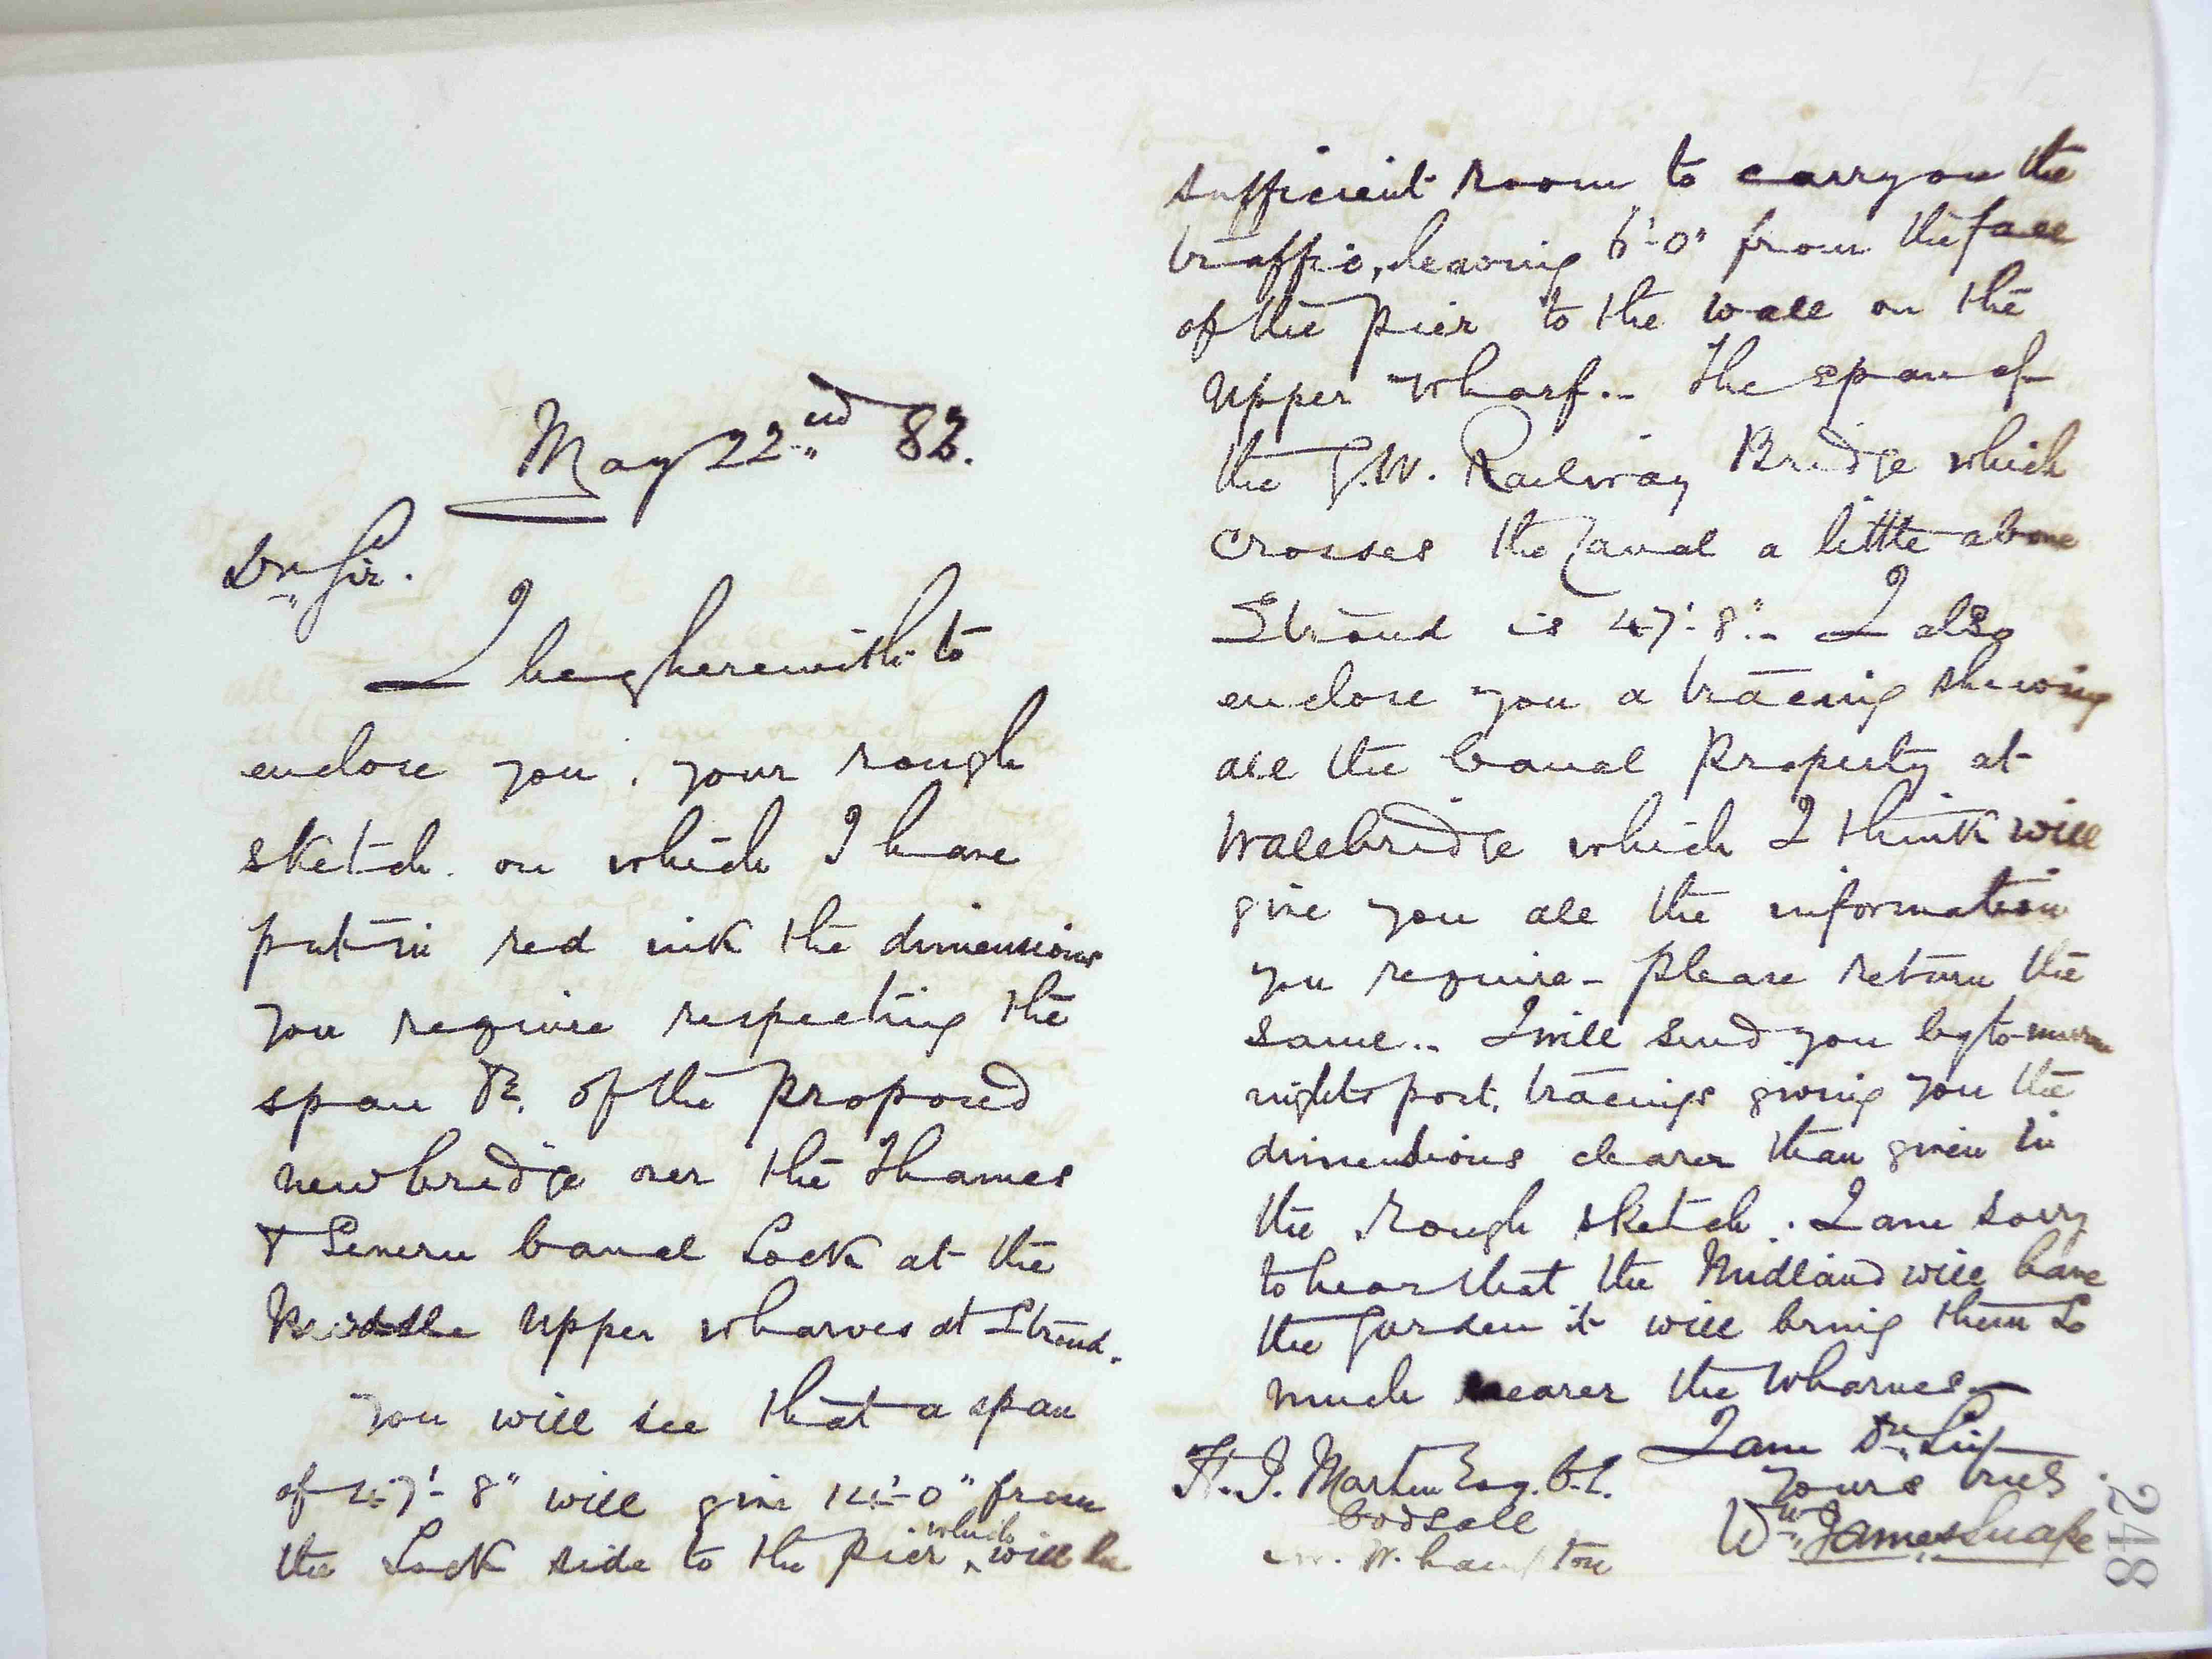 May 22nd 82.
Dr Sir.
I beg herewith to
enclose you, your rough
sketch. on which I have
put in red ink the dimensions
you require respecting the
span &c. of the proposed
new bridge over the Thames
& Severn Canal Lock at the
Upper wharves at Stroud.
You will see that a span
of 47'-8" will give 14'-0" from
the Lock side to the pier which will be
sufficient room to carry on the
traffic, leaving 6'-0" from the face
of the pier to the wall on the
Upper Wharf.. The span of
the G.W. Railway Bridge which
crosses the Canal a little above
Stroud is 47'-8".- I also
enclose you a tracing shewing
all the Canal Property at
Wallbridge which I think will
give you all the information
you require - Please return the
same.. I will send you by to-morrow
nights post, tracings giving you the
dimensions clearer than given in
the rough sketch. I am sorry
to hear that the Midland will have
the Garden it will bring them so
much nearer the Wharves -
I am Dr Sir
Yours truly
Wm Jas Snape
E. J. Marten Esq. C.E.
Codsall
Nr. W.hampton
248